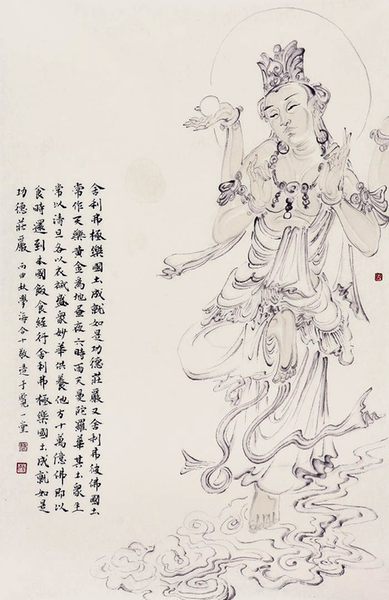 舍利弗極樂國土成就如是功德莊嚴又舍利弗彼佛國土
常作天樂黃金為地晝夜六時雨天曼陀羅華其土眾生
常以清旦各以衣祴盛眾妙華供養他方十萬億佛即以
食時還到本國飯食經行舍利弗極樂國土成就如是
功德莊嚴 丙申秋學海合十敬造于